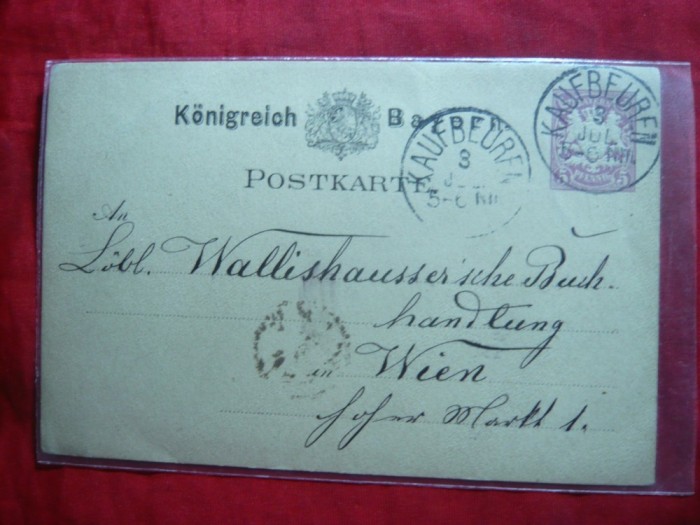 Königreich Bayern
POSTKARTE
KAUFBEUREN
3
JUL
5-6 NM.
KAUFBEUREN
3
JUL
5-6 NM.
5 5
An
Löbl. Wallishausser'sche Buch-
handlung
in Wien
hoher Markt 1.